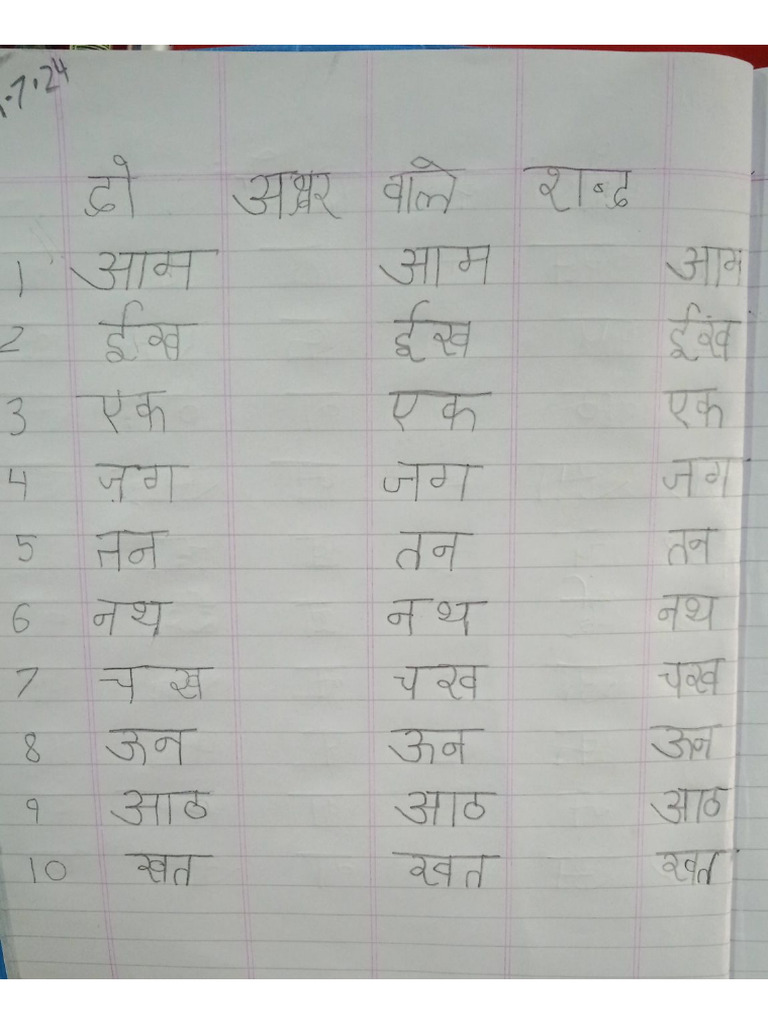 .7.24
दो अक्षर वाले शब्द
1 आम आम आम
2 ईख ईख ईख
3 एक एक एक
4 जग जग जग
5 तन तन तन
6 नथ नथ नथ
7 चख चख चख
8 ऊन ऊन ऊन
9 आठ आठ आठ
10 खत खत खत